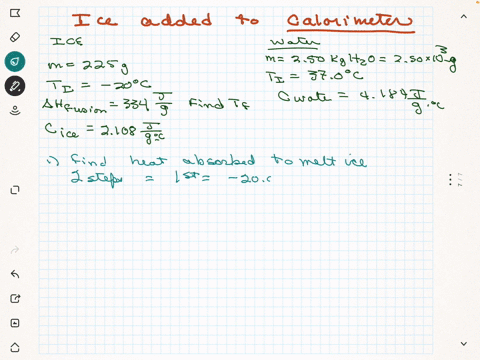 Ice added to Calorimeter
ICE
m = 225g
TI = -20°C
ΔHfusion = 334 J/g Find TF
Cice = 2.108 J/g·°C
Water
m = 2.50 kg H2O = 2.50 × 10³ g
TI = 37.0°C
Cwate = 4.184 J/g·°C
1) Find heat absorbed to melt ice
2 steps = 1st = -20.0